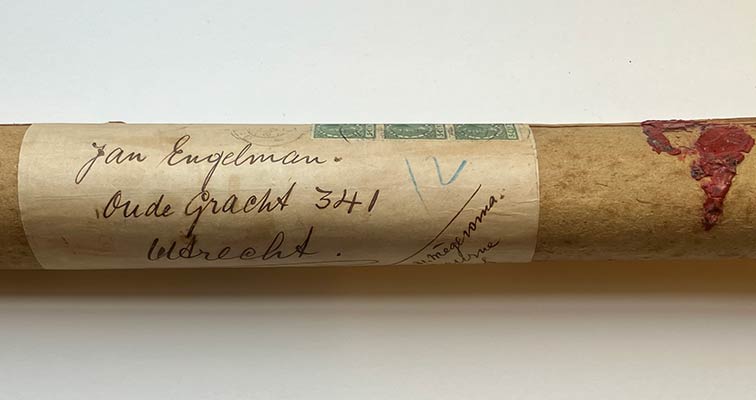 Jan Engelman.
Oude Gracht 341
Utrecht.
12